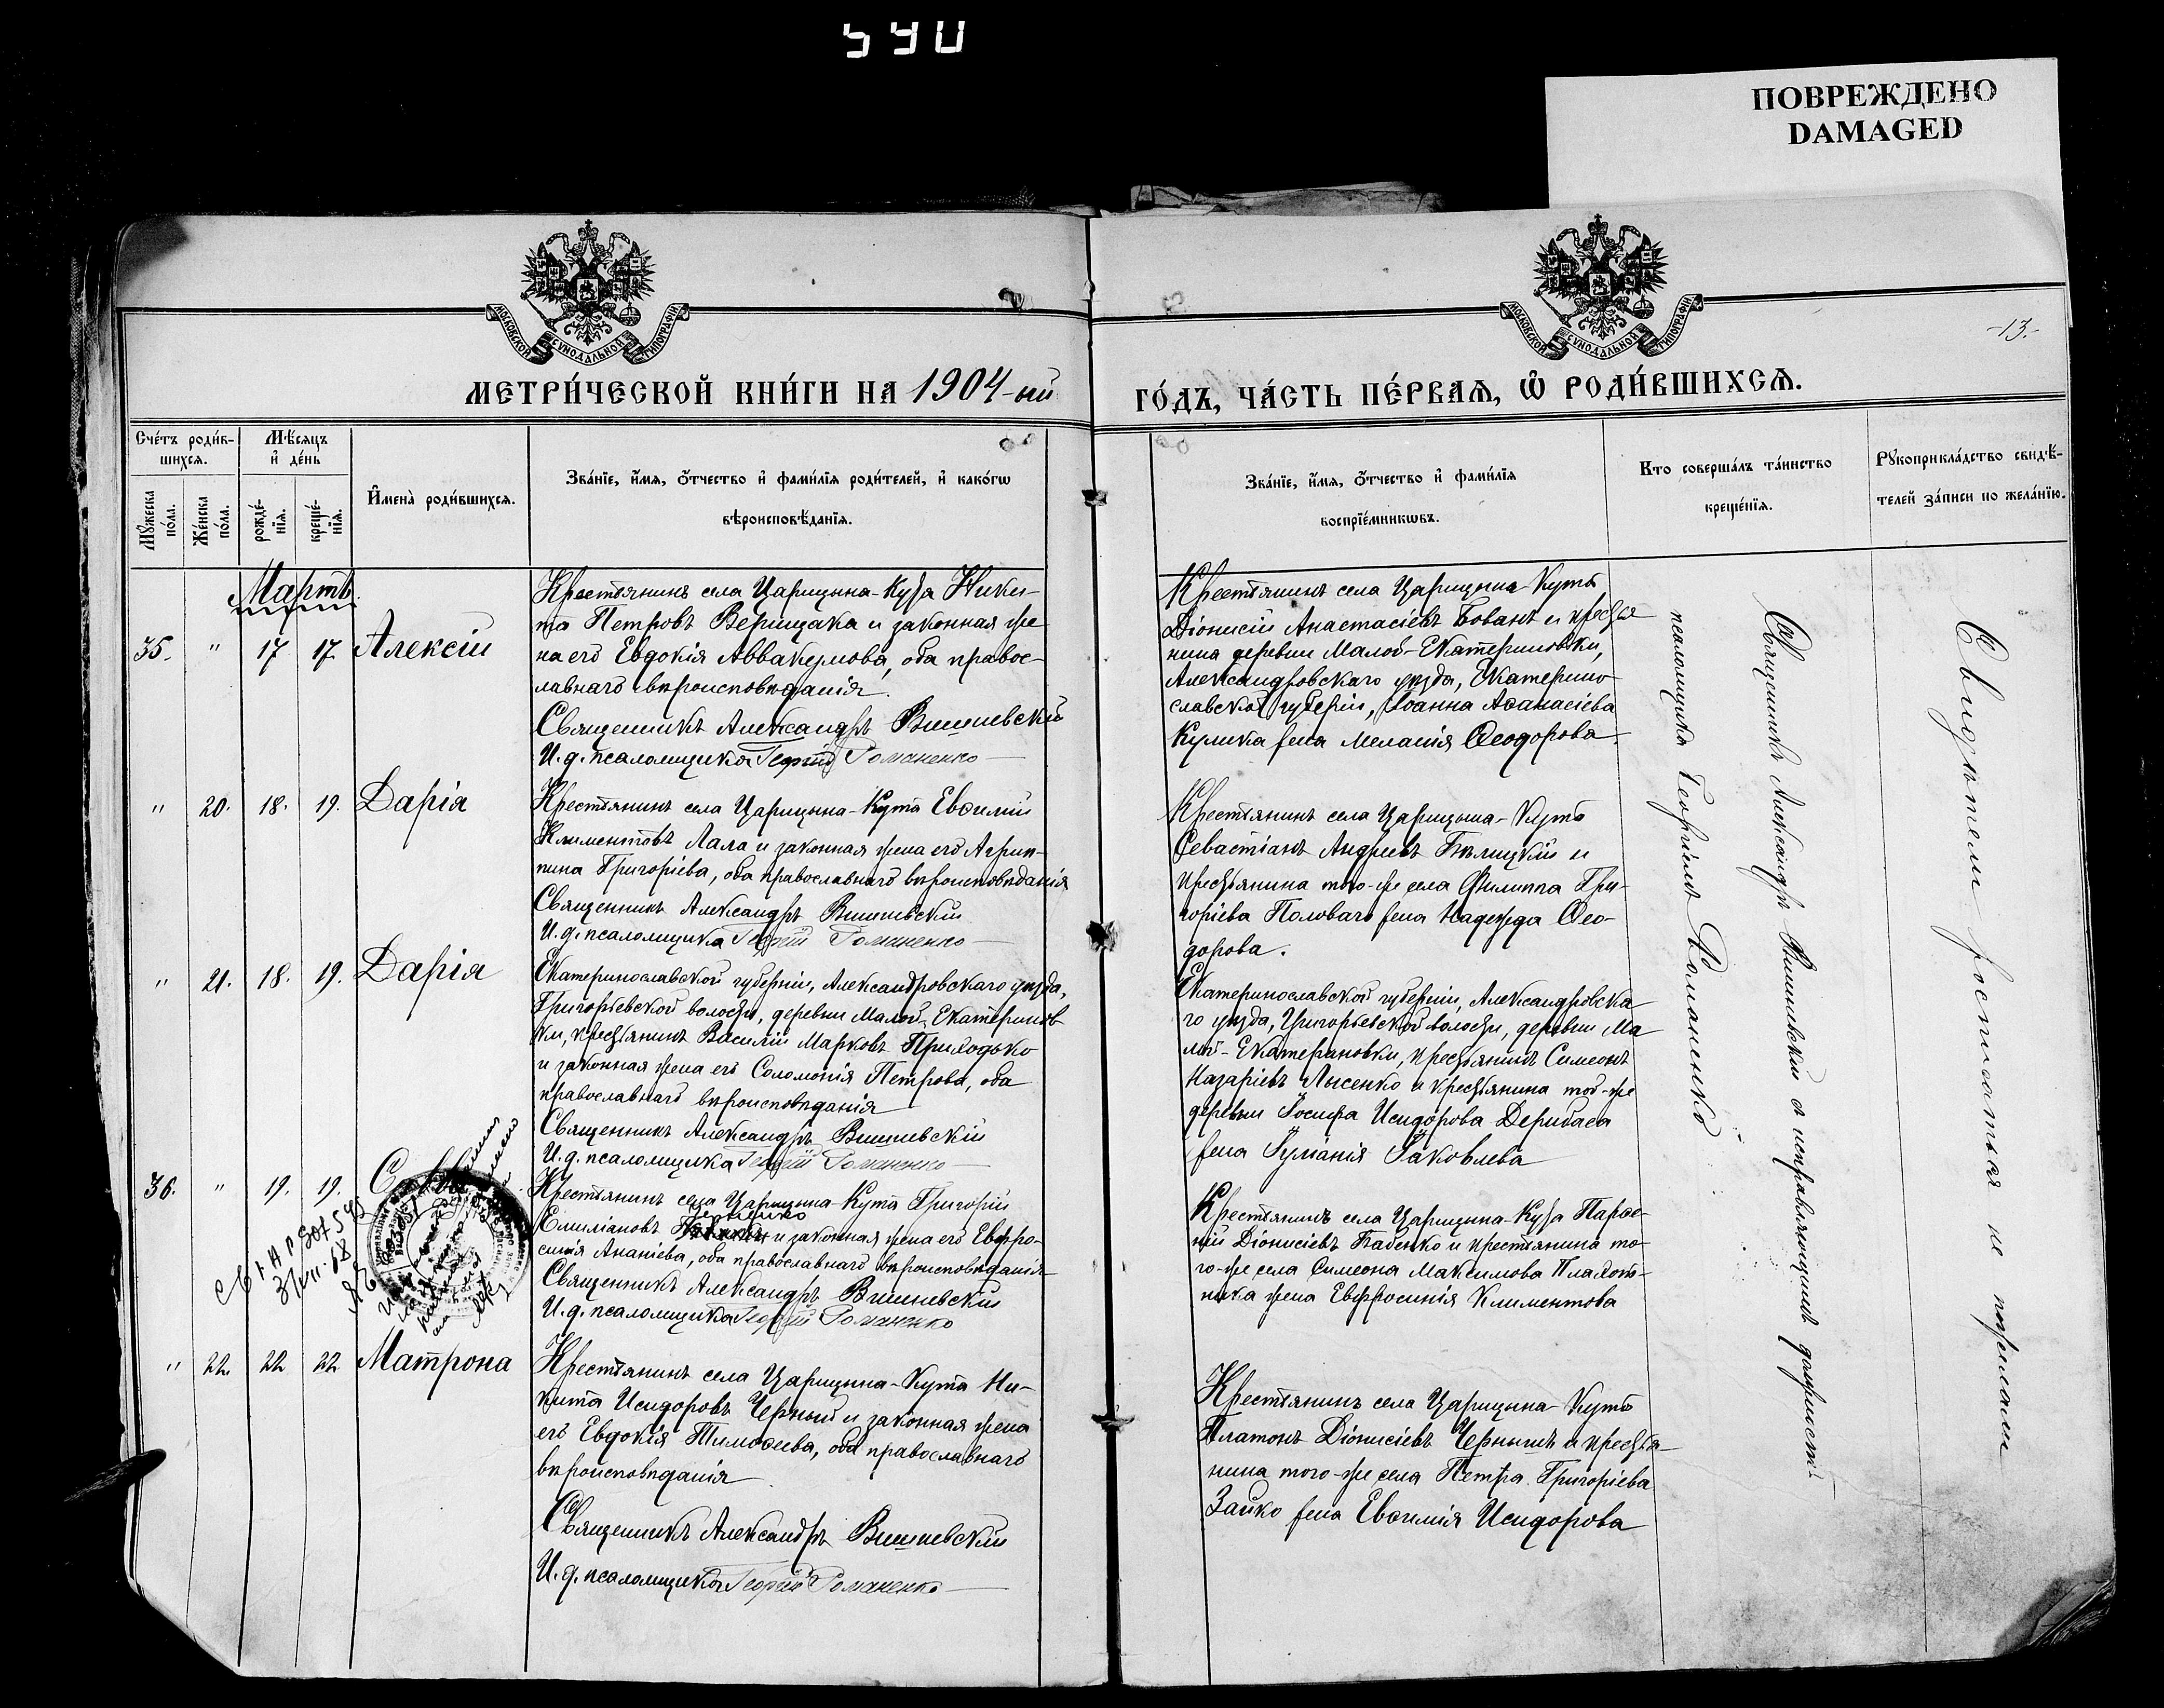 540
ПОВРЕЖДЕНО
DAMAGED
МОСКОВСКОЙ СѴНОДАЛЬНОЙ ТИПОГРАФІИ
МОСКОВСКОЙ СѴНОДАЛЬНОЙ ТИПОГРАФІИ
-13.-
МЕТРИ́ЧЕСКОЙ КНИ́ГИ НА 1904-ый
ГО́ДЪ, ЧА́СТЬ ПЕ́РВАѦ, Ѽ РОДИ́ВШИХСѦ.
Сче́тъ роди́в-
шихся.
Мѣ́сяцъ
и҆ де́нь
Мꙋ́жеска
по́ла.
Же́нска
по́ла.
рожде́-
нїя.
креще́-
нїя.
И҆мена̀ роди́вшихся.
Зва́нїе, и҆́мя, о҆́тчество и҆ фами́лїя роди́телей, и҆ како́гѡ
вѣроисповѣ́данїя.
Зва́нїе, и҆́мя, о҆́тчество и҆ фами́лїя
воспрїе́мникѡвъ.
Кто соверша́лъ та́инство
креще́нїя.
Рꙋкоприкла́дство свидѣ́-
телей за́писи по жела́нїю.
Мартъ.
35. " 17 17. Алексій
Крестьянинъ села Царицына-Кута Ники-
та Петровъ Верещака и законная же
на его Евдокія Аввакумова, оба правос-
лавнаго вѣроисповѣданія.
Священникъ Александръ Вишневскій
И. д. псаломщика Георгій Романенко
Крестьянинъ села Царицына-Кута
Діонисій Анастасіевъ Бованъ и крестья
нина деревни Малой-Екатериновки,
Александровскаго уѣзда, Екатерино-
славской губерніи, Іоанна Аѳанасіева
Кулика жена Меланія Ѳеодорова.
" 20. 18. 19. Дарія
Крестьянинъ села Царицына-Кута Евѳимій
Климентовъ Лала и законная жена его Агрип-
пина Григоріева, оба православнаго вѣроисповѣданія
Священникъ Александръ Вишневскій
И. д. псаломщика Георгій Романенко
Крестьянинъ села Царицына-Кута
Севастіанъ Андреевъ Бѣлицкій и
крестьянина того-же села Филиппа Гри-
горіева Половаго жена Надежда Ѳео-
дорова.
" 21. 18. 19. Дарія
Екатеринославской губерніи, Александровскаго уѣзда,
Григорьевской волости, деревни Малой-Екатеринов
ки, крестьянинъ Василій Марковъ Приходько
и законная жена его Соломонія Петрова, оба
православнаго вѣроисповѣданія
Священникъ Александръ Вишневскій
И. д. псаломщика Георгій Романенко
Екатеринославской губерніи, Александровска
го уѣзда, Григорьевской волости, деревни Ма
лой-Екатериновки, крестьянинъ Симеонъ
Назаріевъ Лысенко и крестьянина той-же
деревни Іосифа Исидорова Дерибаса
жена Іуліанія Іаковлева
36. " 19. 19. Савва
Крестьянинъ села Царицына-Кута Григорій
Емиліановъ и законная жена его Евфро-
синія Ананіева, оба православнаго вѣроисповѣданія
Священникъ Александръ Вишневскій
И. д. псаломщика Георгій Романенко
Крестьянинъ села Царицына-Кута Парѳе-
ній Діонисіевъ Бабенко и крестьянина то-
го-же села Симеона Максимова Плахот-
ника жена Евфросинія Климентова
" 22. 22 22 Матрона
Крестьянинъ села Царицына-Кута Ни-
кита Исидоровъ Черный и законная жена
его Евдокія Тимоѳеева, оба православнаго
вѣроисповѣданія
Священникъ Александръ Вишневскій
И. д. псаломщика Георгій Романенко
Крестьянинъ села Царицына-Кута
Платонъ Діонисіевъ Черный и крестья-
нина того-же села Петра Григоріева
Зайко жена Евѳимія Исидорова
Священникъ Александръ Вишневскій съ исправляющимъ должность
псаломщика Георгіемъ Романенко
Свидѣтели росписаться не пожелали